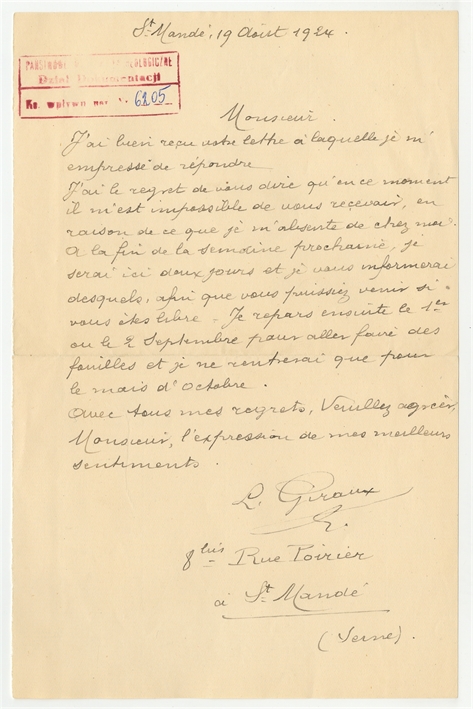 St Mandé, 19 Août 1924.
PAŃSTWOWE OLOGICZNE
Dział Dokumentacji
Ks. wpływu nr 6205
Monsieur.
J'ai bien reçu votre lettre à laquelle je m'
empresse de répondre
J'ai le regret de vous dire qu'en ce moment
il m'est impossible de vous recevoir, en
raison de ce que je m'absente de chez moi.
A la fin de la semaine prochaine, je
serai ici deux jours et je vous informerai
desquels, afin que vous puissiez venir si
vous êtes libre - Je repars ensuite le 1er
ou le 2 Septembre pour aller faire des
fouilles et je ne rentrerai que pour
le mois d'Octobre.
Avec tous mes regrets, Veuillez agréer,
Monsieur, l'expression de mes meilleurs
sentiments.
L. Giraux
bis Rue Poirier
à St Mandé
(Seine).